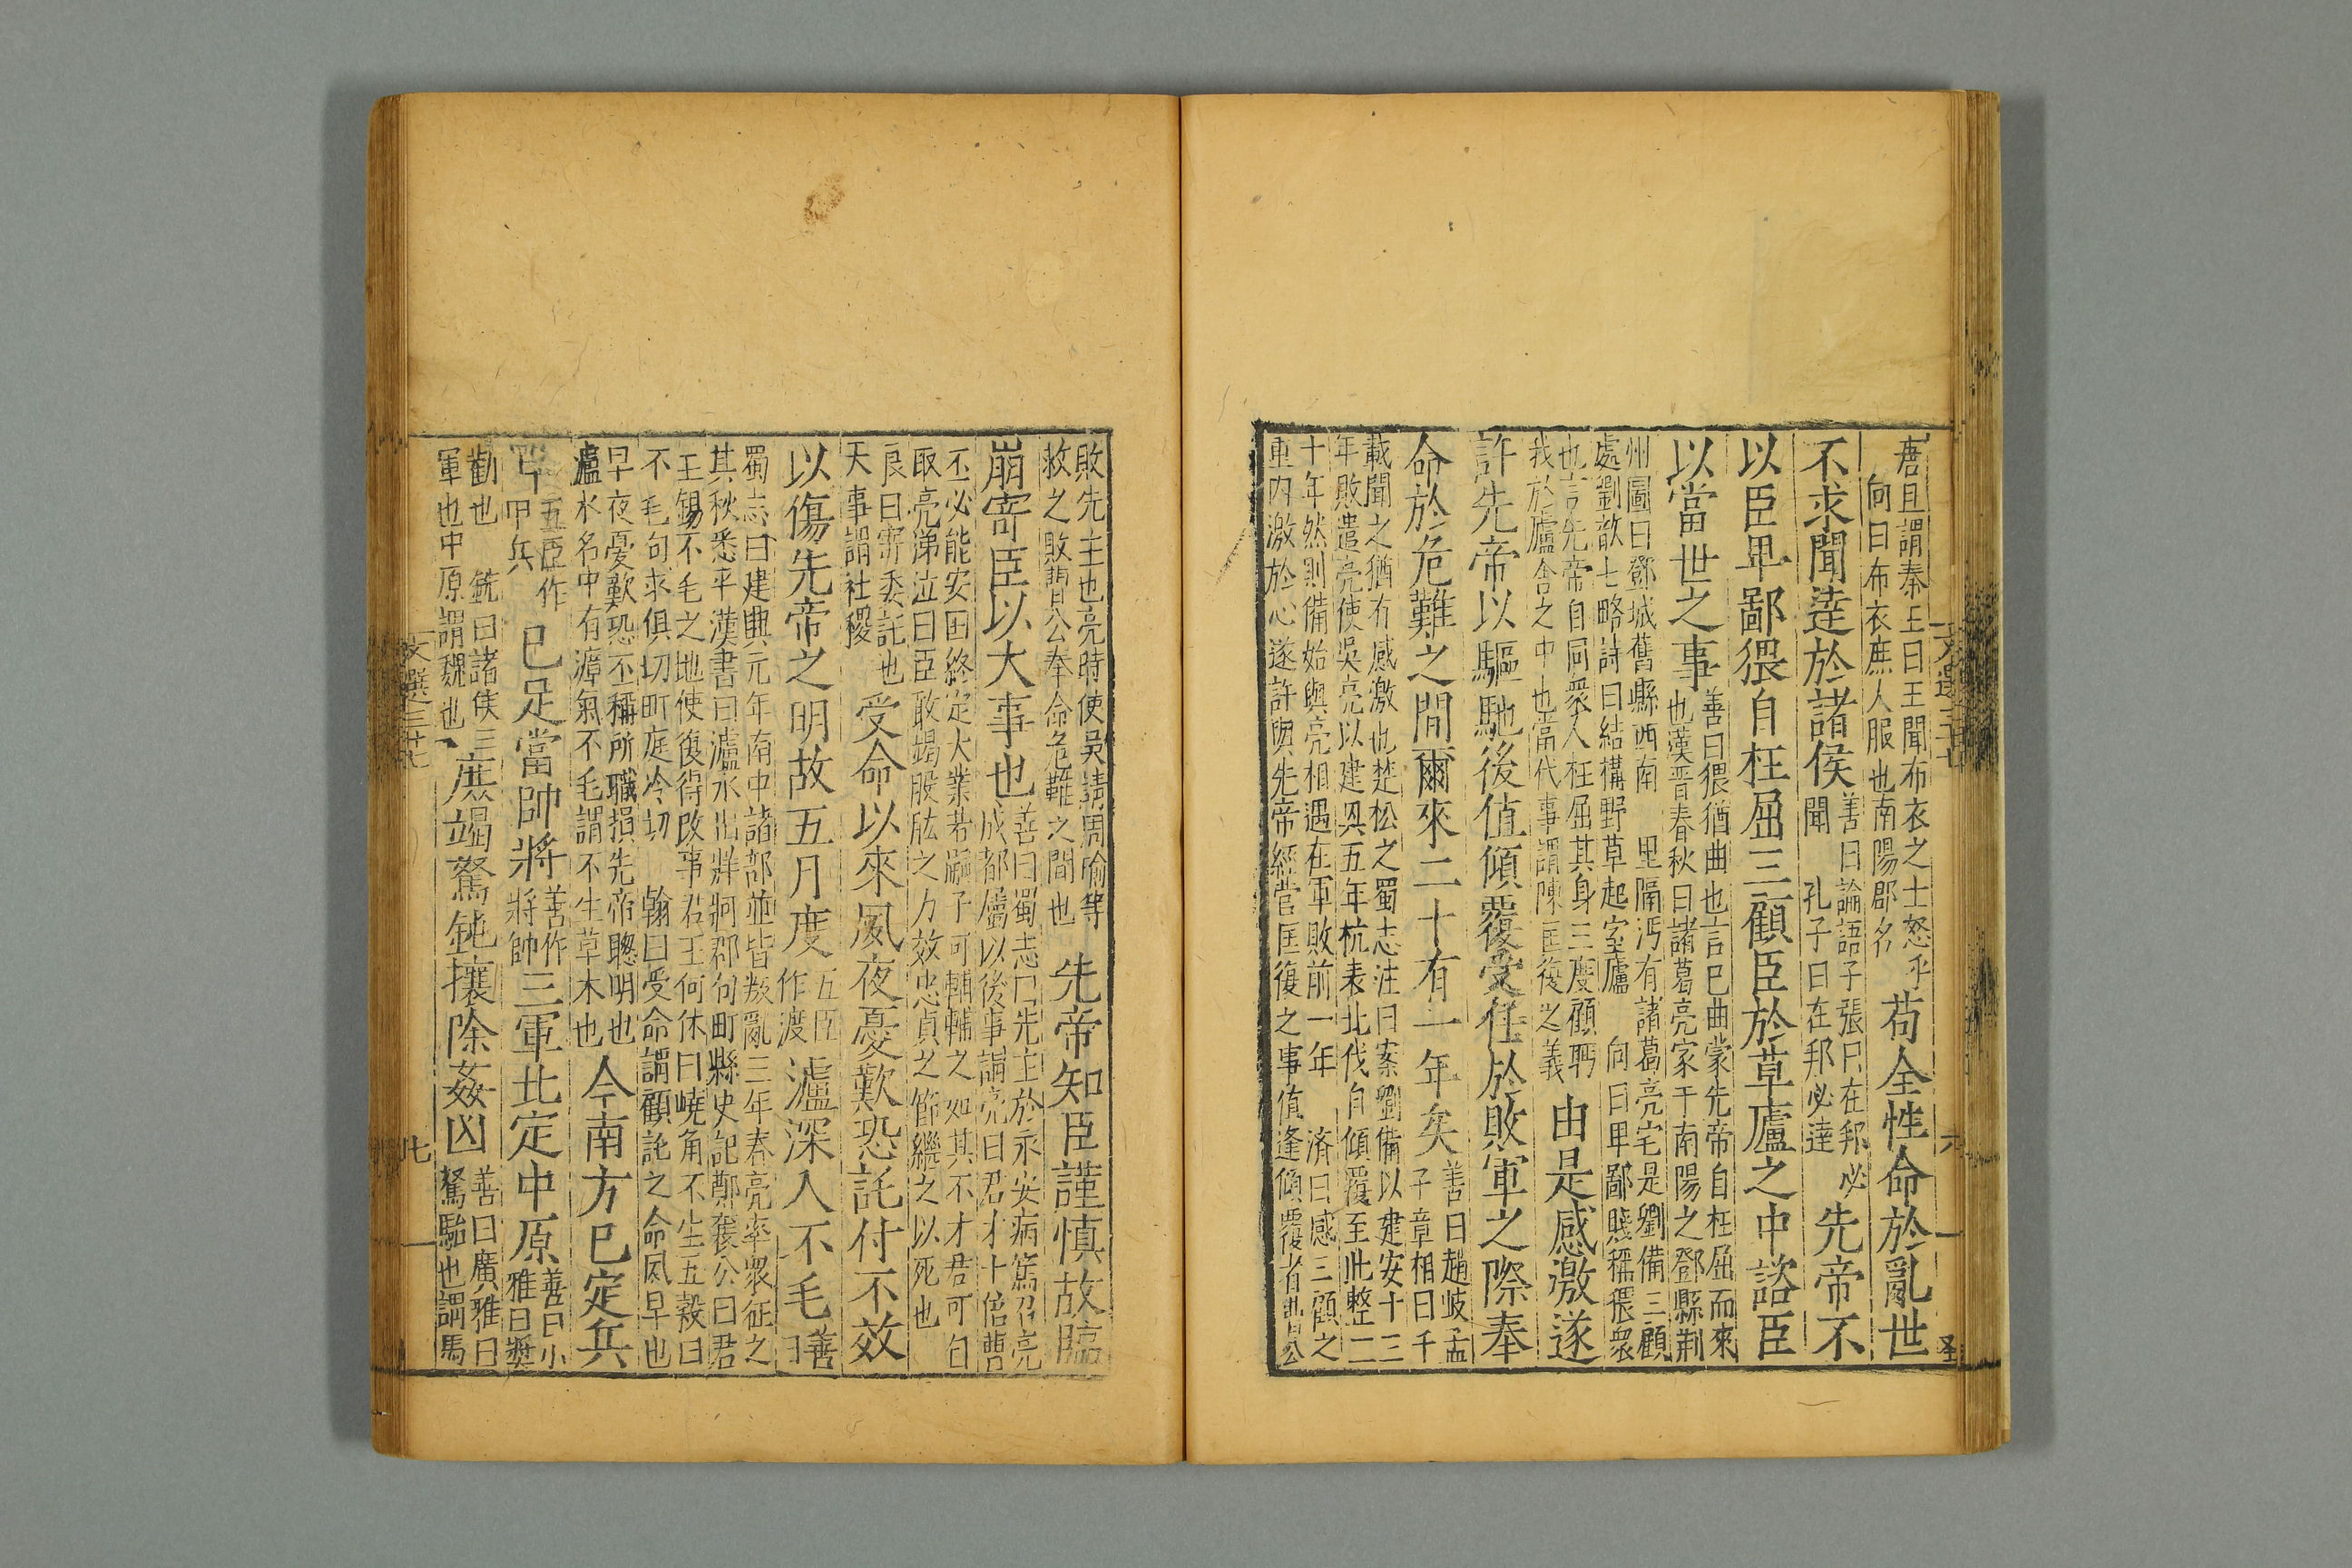 唐且謂秦王曰王聞布衣之士怒乎
向曰布衣庶人服也南陽郡名
苟全性命於亂世
不求聞達於諸侯
善曰論語子張曰在邦必
聞 孔子曰在邦必達
先帝不
以臣卑鄙猥自枉屈三顧臣於草廬之中諮臣
以當世之事
善曰猥猶曲也言已曲蒙先帝自枉屈而來
也漢晋春秋曰諸葛亮家于南陽之鄧縣荆
州圖曰鄧城舊縣西南 里隔沔有諸葛亮宅是劉備三顧
處劉歆七略詩曰結構野草起室廬 向曰卑鄙賤稱猥衆
也言先帝自同衆人枉屈其身三度顧聘
我於廬舍之中也當代事謂陳匡復之義
由是感激遂
許先帝以驅馳後值傾覆受任於敗軍之際奉
命於危難之間爾來二十有一年矣
善曰趙岐孟
子章相曰千
載聞之猶有感激也楚松之蜀志注曰案劉備以建安十三
年敗遣亮使吳亮以建興五年杭表北伐自傾覆至此整二
十年然則備始與亮相遇在軍敗前一年 濟曰感三顧之
重内激於心遂許與先帝經營匡復之事值逢傾覆者曹公
敗先主也亮時使吳請周瑜等
救之敗曹公奉命危難之間也
先帝知臣謹慎故臨
崩寄臣以大事也
善曰蜀志曰先主於永安病篤召亮
成都屬以後事謂亮曰君才十倍曹
丕必能安國終定大業若嗣子可輔輔之如其不才君可自
取亮涕泣曰臣敢竭股肱之力效忠貞之節繼之以死也
良曰寄委託也
天事謂社稷
受命以來夙夜憂歎恐託付不效
以傷先帝之明故五月度
五臣
作渡
瀘深入不毛
善
曰
蜀志曰建興元年南中諸部並皆叛亂三年春亮率衆征之
其秋悉平漢書曰瀘水出牂牁郡句町縣史記鄭襄公曰君
王錫不毛之地使復得改事君王何休曰嶢角不生五穀曰
不毛句求俱切町庭冷切 翰曰受命謂顧託之命夙早也
早夜憂歎恐不稱所職損先帝聰明也
瀘水名中有瘴氣不毛謂不生草木也
今南方已定兵
甲
五臣作
甲兵
已足當帥將
善作
將帥
三軍北定中原
善曰小
雅曰奬
勸也 銑曰諸侯三
軍也中原謂魏也
庶竭駑鈍攘除姦凶
善曰廣雅曰
駑駘也謂馬
文選三十七
六
文選三十七
七